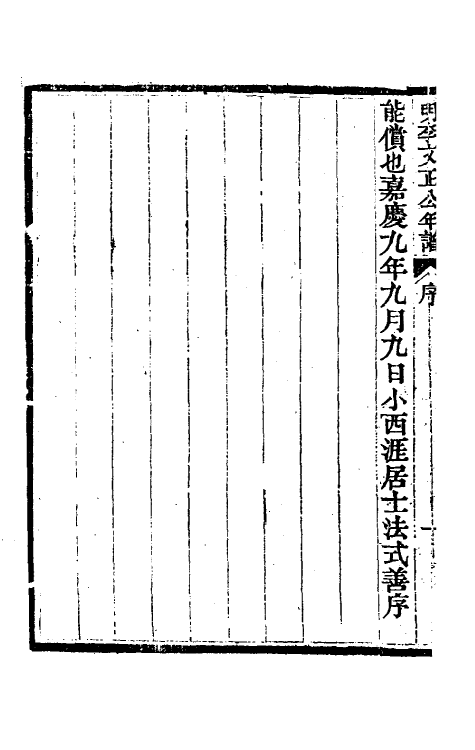 明李文正公年譜 序 一
能償也嘉慶九年九月九日小西涯居士法式善序